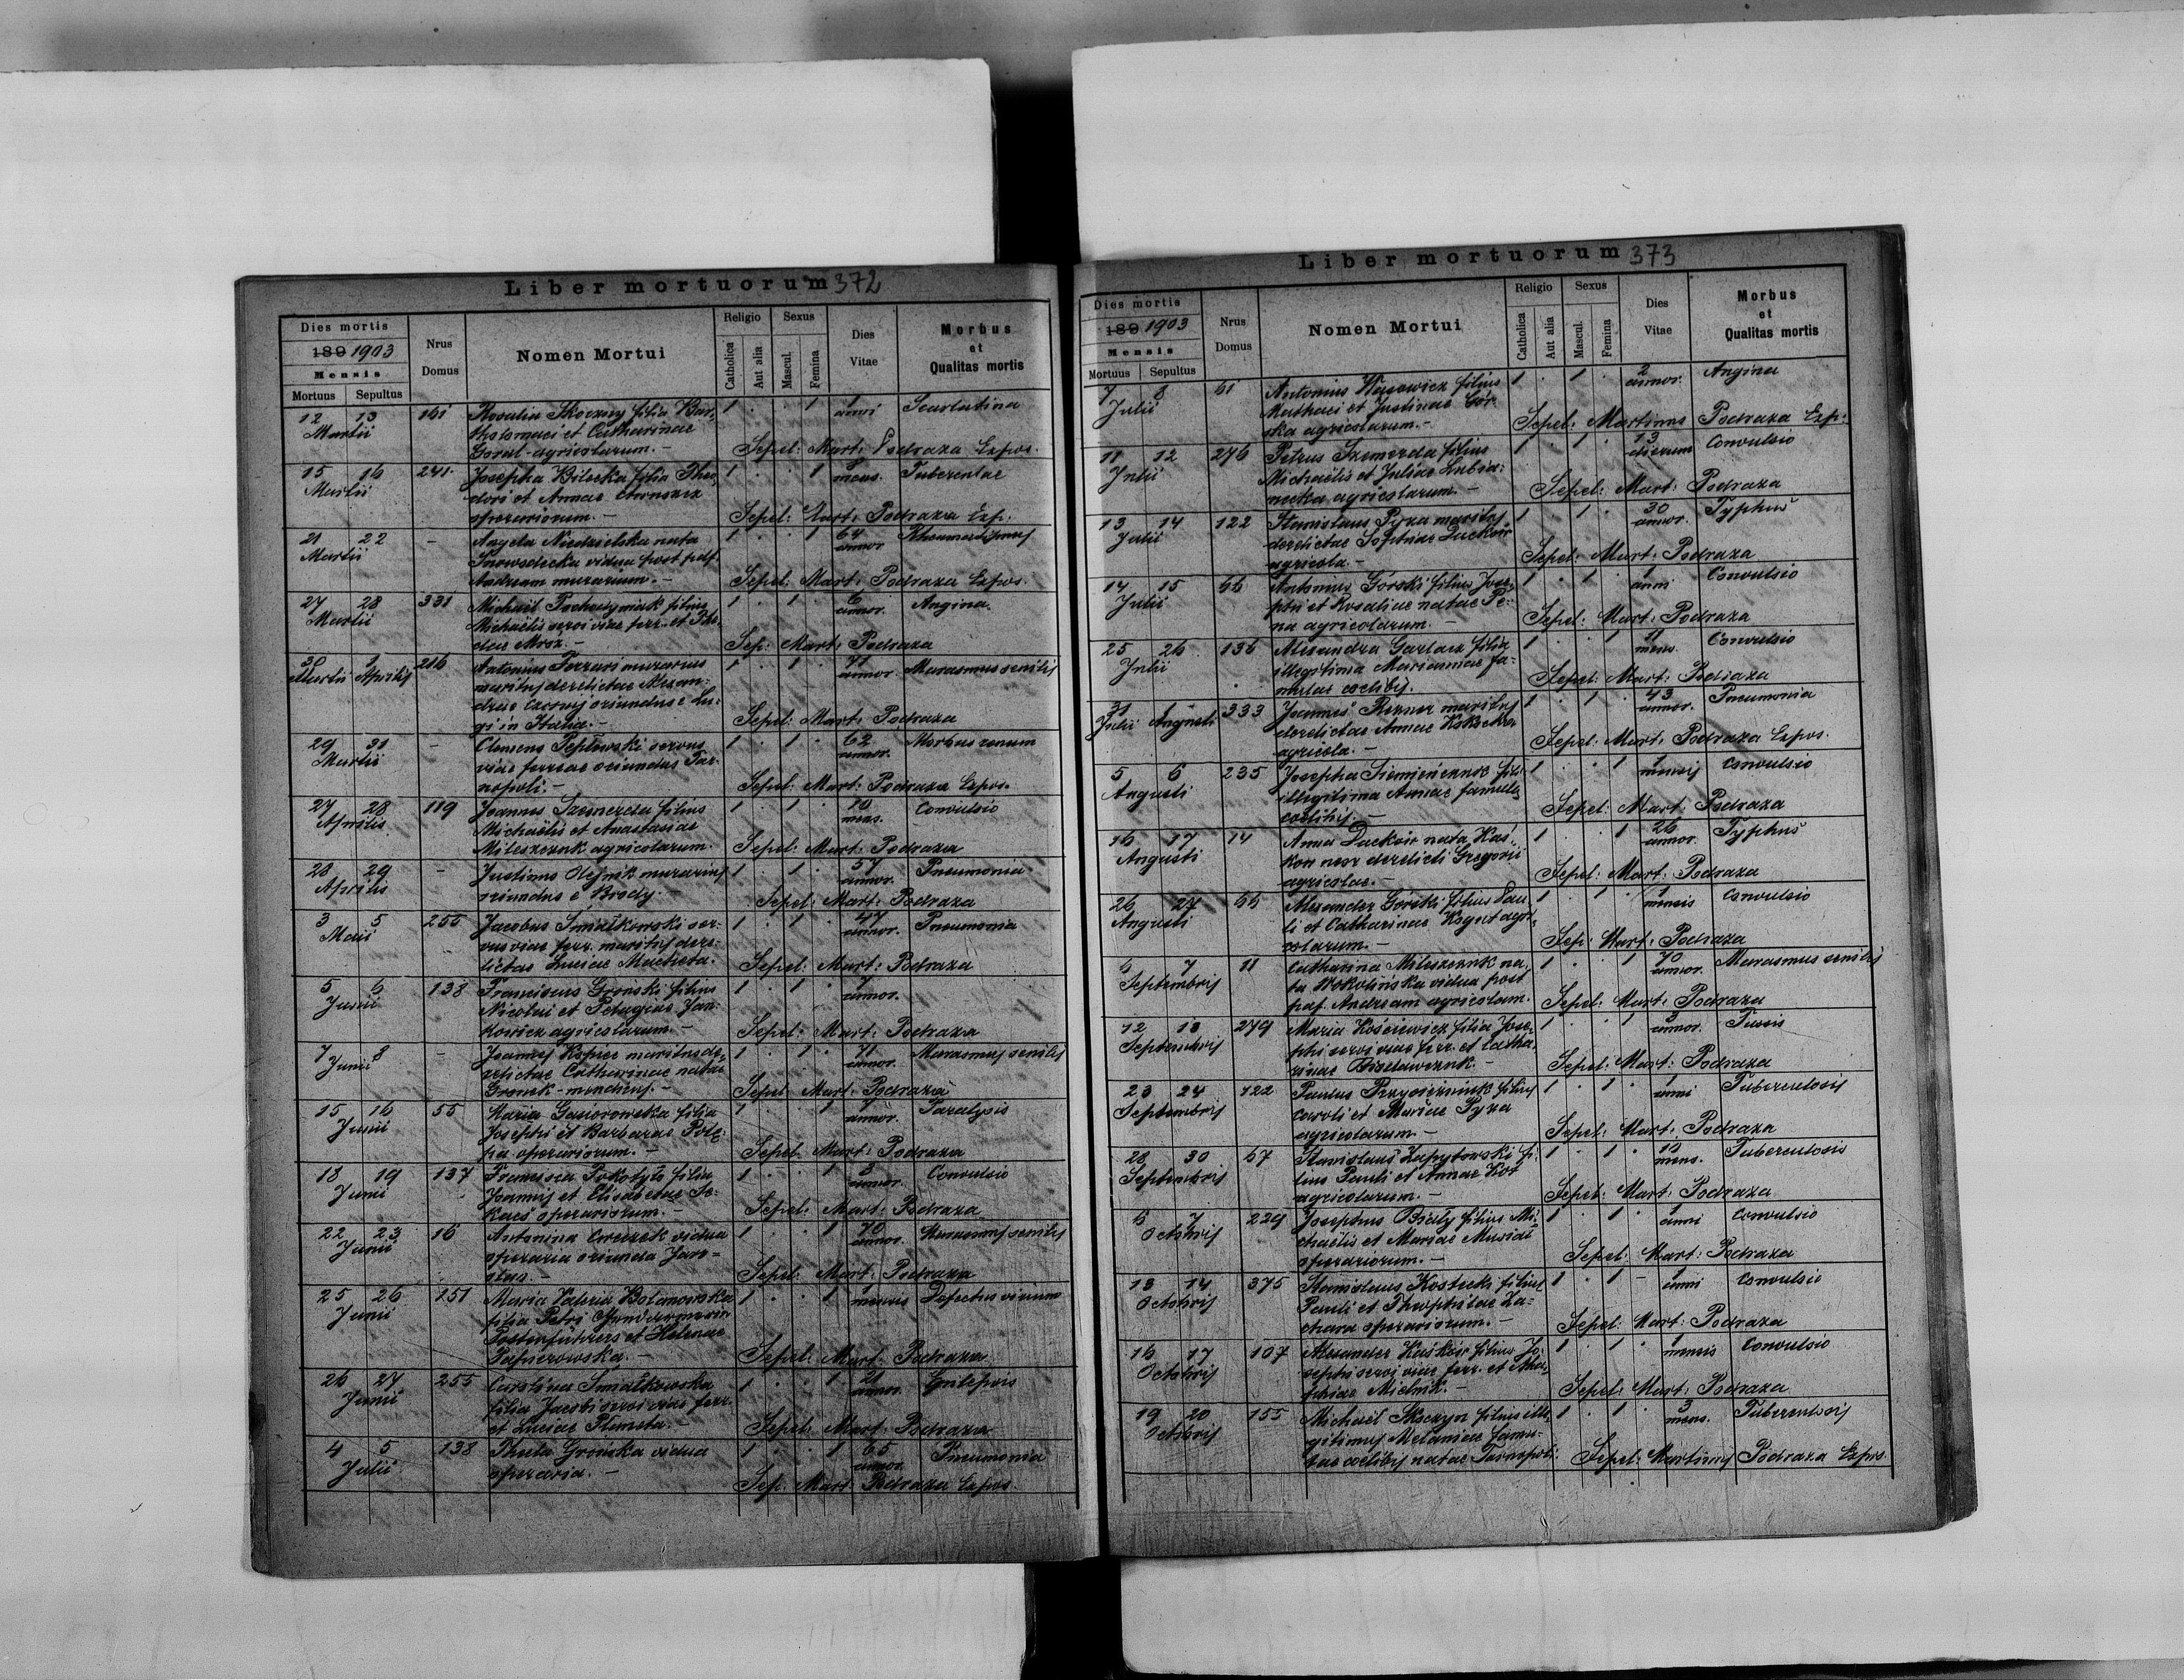 Liber mortuorum 372
Dies mortis
189 1903
Mensis
Mortuus Sepultus
Nrus Domus
Nomen Mortui
Religio
Catholica Aut alia
Sexus
Mascul. Femina
Dies Vitae
Morbus et Qualitas mortis
12 13 161 Rosalia Skoczny filia Bar- 1 . . 1 1 Scarlatina
Martii tholomaei et Catharinae anni
Goral agricolarum.- Sepel: Mart: Podraza Expos.
15 16 241 Josepha Bilecka filia Theo- 1 . . 1 8 Tuberculae
Martii dori et Annae mens.
operariorum.- Sepel: Mart: Podraza Exp.
21 22 - Angela Niedzielska nata 1 . . 1 64
Martii vidua post pdf. annor
Andream murarium.- Sepel: Mart: Podraza Expos.
27 28 331 Michaël filius 1 . 1 . 6 Angina
Martii Michaëlis servi viae ferr. et annor.
Mróz.- Sep: Mart: Podraza
30 1 216 Antonius Ferrari murarius 1 . 1 . 71 Marasmus senilis
Martii Aprilis maritus derelictae Alexan- annor.
drae oriundus e Lu-
gi in Italia.- Sepel: Mart: Podraza
29 31 - Clemens Pepłowski servus 1 . 1 . 62 Morbus renum
Martii viae ferreae oriundus Tar- annor.
nopoli.- Sepel: Mart: Podraza Expos.
27 28 119 Joannes Szemerda filius 1 . 1 . 10 Convulsio
Aprilis Michaëlis et Anastasiae mens.
Mileszczuk agricolarum. Sepel: Mart: Podraza
28 29 - Justinus Olejnik murarius 1 . 1 . 57 Pneumonia
Aprilis oriundus e Brody.- annor.
Sepel: Mart: Podraza
3 5 255 Jacobus Śmiałkowski ser- 1 . 1 . 47 Pneumonia
Maii vus viae ferr. maritus dere- annor.
lictae Luciae Sepel: Mart: Podraza
5 6 138 Franciscus Gronski filius 1 . 1 . 7
Junii Nicolai et Pelagiae Jan- annor.
kowicz agricolarum.- Sepel: Mart: Podraza
7 8 - Joannes Kopiec maritus de- 1 . 1 . 71 Marasmus senilis
Junii relictae Catharinae natae annor.
Gronek - mendicus.- Sepel: Mart: Podraza
15 16 55 Maria Gąsiorowska filia 1 . . 1 7 Paralysis
Junii Josephi et Barbarae Potę- annor.
pa operariorum.- Sepel: Mart: Podraza
18 19 137 Francisca Pokotyło filia 1 . . 1 3 Convulsio
Junii Joannis et Elisabethae annor.
operariorum.- Sepel: Mart: Podraza
22 23 16 Antonina vidua 1 . . 1 70 Marasmus senilis
Junii operaria oriunda Jaro- annor.
slau.- Sepel: Mart: Podraza
25 26 151 Maria Valeria Bolanowska 1 . . 1 1 Defectus virium
Junii filia Petri mensis
Postenführers et Helenae
Papierowska.- Sepel: Mart: Podraza
26 27 255 Carolina Śmiałkowska 1 . . 1 21
Junii filia Jacobi servi viae ferr. annor.
et Luciae Sepel: Mart: Podraza
4 5 138 Thecla Gronska vidua 1 . . 1 65 Pneumonia
Julii operaria.- annor.
Sep: Mart: Podraza Expos.
Liber mortuorum 373
Dies mortis
189 1903
Mensis
Mortuus Sepultus
Nrus Domus
Nomen Mortui
Religio
Catholica Aut alia
Sexus
Mascul. Femina
Dies Vitae
Morbus et Qualitas mortis
7 8 61 Antonius Wąsowicz filius 1 . 1 . 2 Angina
Julii Mathaei et Justinae Gór- annor.
ska agricolarum.- Sepel: Martinus Podraza Exp:
11 12 276 Petrus Szemerda filius 1 . 1 . 13 Convulsio
Julii Michaëlis et Juliae Lubia- dierum
necka agricolarum.- Sepel: Mart: Podraza
13 14 122 Stanislaus Pyza maritus 1 . 1 . 30 Typhus
Julii derelictae Sophiae Duckoir annor.
agricola.- Sepel: Mart: Podraza
14 15 66 Antonius Górski filius Jose- 1 . 1 . 1 Convulsio
Julii phi et Rosaliae natae Pe- anni
na agricolarum.- Sepel: Mart: Podraza
25 26 156 Alexandra filia 1 . . 1 11 Convulsio
Julii illegitima Mariannae fa- mens.
mulae coelibis. Sepel: Mart: Podraza
31 333 Joannes Rezner maritus 1 . 1 . 43 Pneumonia
Julii Augusti derelictae Annae annor.
agricola.- Sepel: Mart: Podraza Expos.
5 6 235 Josepha Siemieńczuk fili- 1 . . 1 1 Convulsio
Augusti illegitima Annae famulae mensis
coelibis.- Sepel: Mart: Podraza
16 17 14 Anna Duckoir nata 1 . . 1 26 Typhus
Augusti uxor derelicti Gregorii annor.
agricolae.- Sepel: Mart: Podraza
26 27 66 Alexander Górski filius Pau- 1 . 1 . 1 Convulsio
Augusti li et Catharinae Kogut agri- mensis
colarum.- Sep: Mart: Podraza
6 7 11 Catharina Mileszczuk na- 1 . . 1 70 Marasmus senilis
Septembris ta vidua post annor.
pdf. Andream agricolam. Sepel: Mart: Podraza
12 13 279 Maria Kościewicz filia Jose- 1 . . 1 3 Tussis
Septembris phi servi viae ferr. et Catha- annor.
rinae Sepel: Mart: Podraza
23 24 122 Paulus filius 1 . 1 . 1 Tuberculosis
Septembris Caroli et Mariae Pyza anni
agricolarum.- Sepel: Mart: Podraza
28 30 67 Stanislaus Zapytowski fi- 1 . 1 . 10 Tuberculosis
Septembris lius Pauli et Annae Kos mens.
agricolarum.- Sepel: Mart: Podraza
6 7 229 Josephus Biały filius Mi- 1 . 1 . 1 Convulsio
Octobris chaëlis et Mariae Musiał anni
operariorum.- Sepel: Mart: Podraza
13 14 375 Stanislaus Kostecki filius 1 . 1 - 1 Convulsio
Octobris Pauli et Theophilae Za- anni
chara operariorum.- Sepel: Mart: Podraza
16 17 107 Alexander filius Jo- 1 . 1 . 1 Convulsio
Octobris sephi servi viae ferr. et mensis
Mielnik.- Sepel: Mart: Podraza
19 20 155 Michaël Skoczyn filius ille- 1 . 1 . 3 Tuberculosis
Octobris gitimus Melaniae famu- mens.
lae coelibis natae Tarnopoli: Sepel: Martinus Podraza Expos.